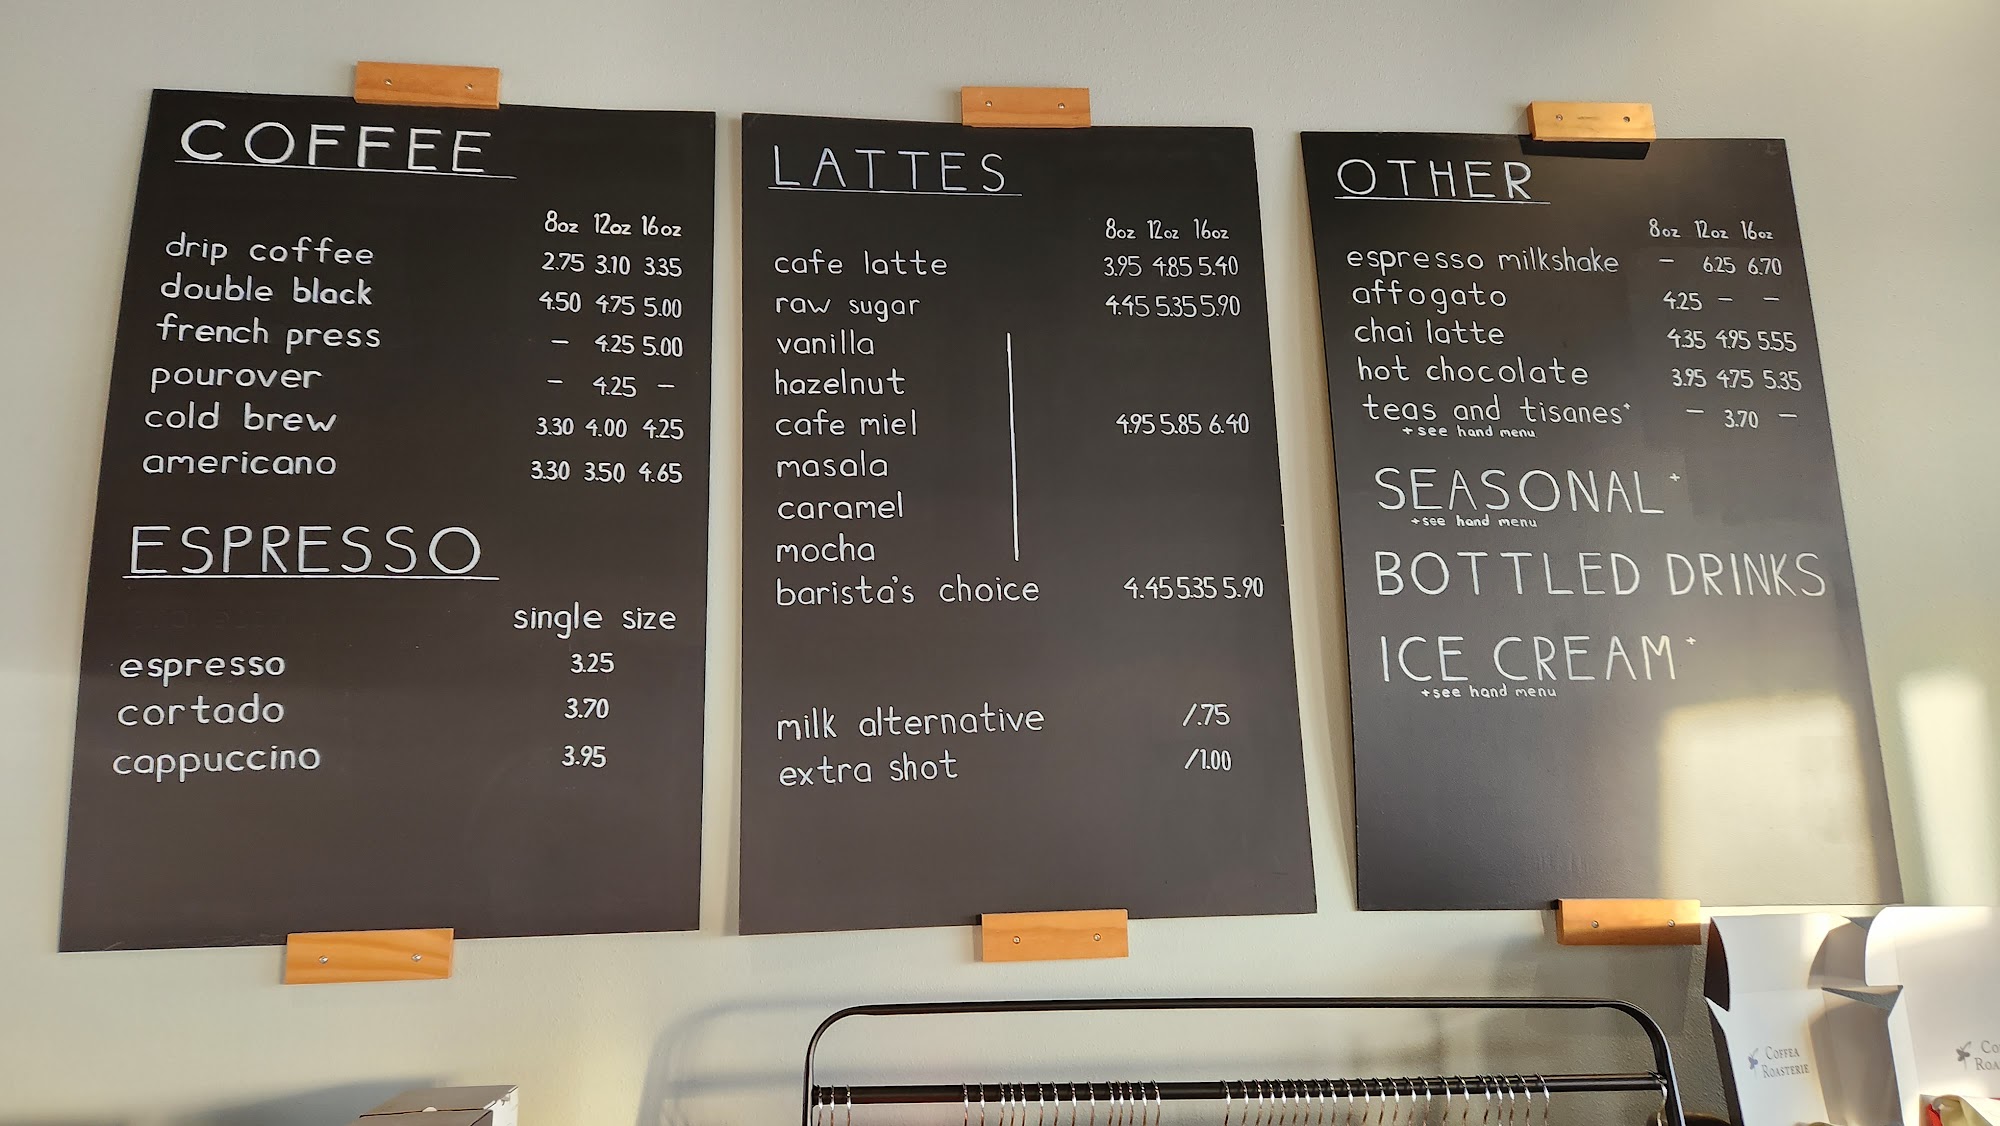 COFFEE
8oz 12oz 16oz
drip coffee 2.75 3.10 3.35
double black 4.50 4.75 5.00
french press – 4.25 5.00
pourover – 4.25 –
cold brew 3.30 4.00 4.25
americano 3.30 3.50 4.65
ESPRESSO
single size
espresso 3.25
cortado 3.70
cappuccino 3.95
LATTES
8oz 12oz 16oz
cafe latte 3.95 4.85 5.40
raw sugar 4.45 5.35 5.90
vanilla
hazelnut
cafe miel 4.95 5.85 6.40
masala
caramel
mocha
barista's choice 4.45 5.35 5.90
milk alternative /.75
extra shot /1.00
OTHER
8oz 12oz 16oz
espresso milkshake – 6.25 6.70
affogato 4.25 – –
chai latte 4.35 4.95 5.55
hot chocolate 3.95 4.75 5.35
teas and tisanes+ – 3.70 –
+see hand menu
SEASONAL+
+see hand menu
BOTTLED DRINKS
ICE CREAM+
+see hand menu
COFFEA
ROASTERIE